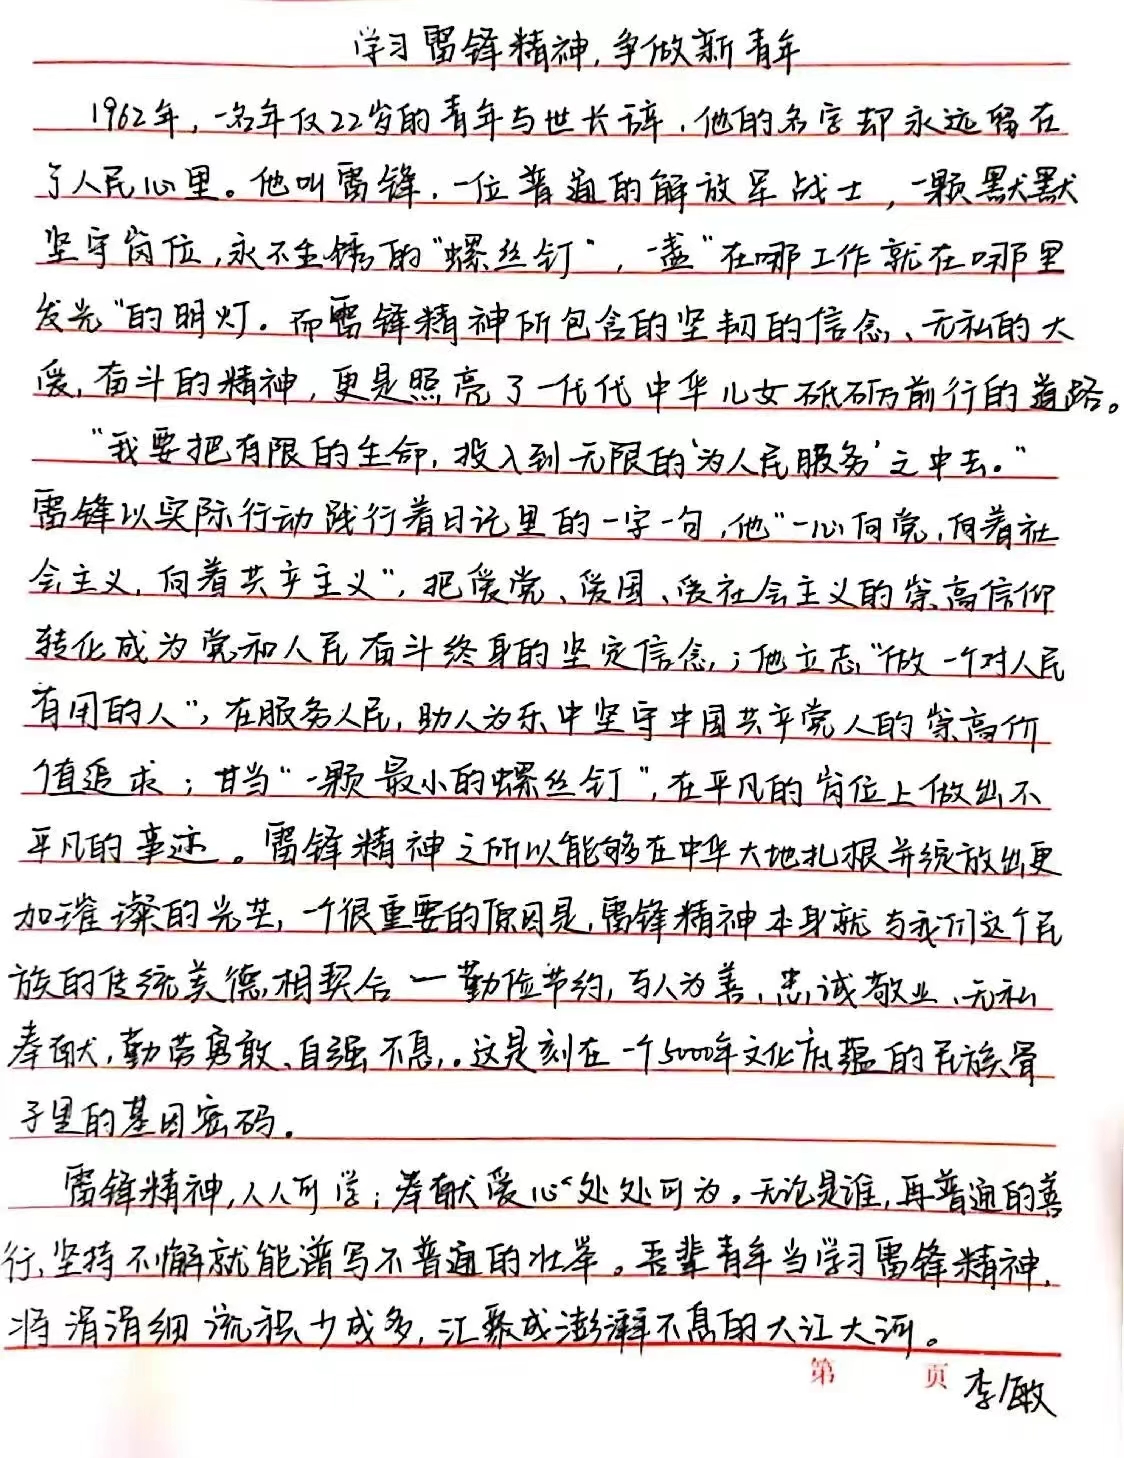 学习雷锋精神,争做新青年
1962年,一名年仅22岁的青年与世长辞.他的名字却永远留在
了人民心里。他叫雷锋,一位普通的解放军战士,一颗默默
坚守岗位,永不生锈的“螺丝钉”,一盏“在哪工作就在哪里
发光”的明灯。而雷锋精神所包含的坚韧的信念、无私的大
爱,奋斗的精神,更是照亮了一代代中华儿女砥砺前行的道路。
“我要把有限的生命,投入到无限的‘为人民服务’之中去。”
雷锋以实际行动践行着日记里的一字一句,他“一心向党,向着社
会主义,向着共产主义”,把爱党、爱国、爱社会主义的崇高信仰
转化成为党和人民奋斗终身的坚定信念,;他立志“做一个对人民
有用的人”,在服务人民,助人为乐中坚守中国共产党人的崇高价
值追求;甘当“一颗最小的螺丝钉”,在平凡的岗位上做出不
平凡的事迹。雷锋精神之所以能够在中华大地扎根并绽放出更
加璀璨的光芒,一个很重要的原因是,雷锋精神本身就与我们这个民
族的传统美德相契合一勤俭节约,与人为善、忠诚敬业、无私
奉献,勤劳勇敢、自强不息,.这是刻在一个5000年文化底蕴的民族骨
子里的基因密码.
雷锋精神,人人可学;奉献爱心“处处可为。无论是谁,再普通的善
行,坚持不懈就能谱写不普通的壮举。吾辈青年当学习雷锋精神,
将涓涓细流积少成多,汇聚成澎湃不息的大江大河。
第 页 李敏